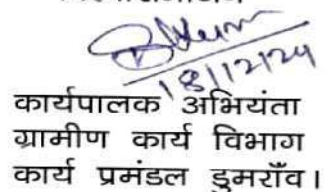 18/12/24
कार्यपालक अभियंता
ग्रामीण कार्य विभाग
कार्य प्रमंडल डुमराँव।